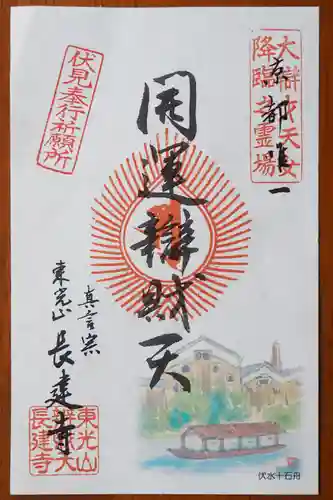 大辯才天女
降臨之霊場
京都唯一
開運辯財天
伏見奉行祈願所
真言宗
東光山
長建寺
東光山
辯財天
長建寺
伏水十石舟